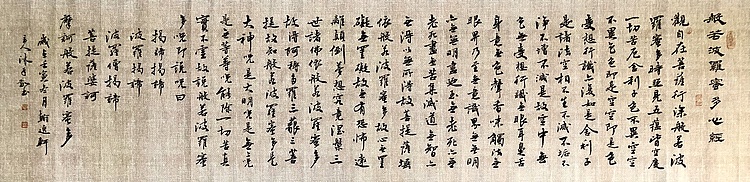 般若波羅蜜多心經
觀自在菩薩行深般若波
羅蜜多時照見五蘊皆空度
一切苦厄舍利子色不異空空
不異色色卽是空空卽是色
受想行識亦復如是舍利子
是諸法空相不生不滅不垢不
淨不增不減是故空中無
色無受想行識無眼耳鼻舌
身意無色聲香味觸法無
眼界乃至無意識界無無明
亦無無明盡乃至無老死亦無
老死盡無苦集滅道無智亦
無得以無所得故菩提薩埵
依般若波羅蜜多故心無罣
礙無罣礙故無有恐怖遠
離顚倒夢想究竟涅槃三
世諸佛依般若波羅蜜多
故得阿耨多羅三藐三菩
提故知般若波羅蜜多是
大神呪是大明呪是無上呪
是無等等呪能除一切苦真
實不虛故說般若波羅蜜
多呪卽說呪曰
揭諦揭諦
波羅揭諦
波羅僧揭諦
菩提薩婆訶
摩訶般若波羅蜜多